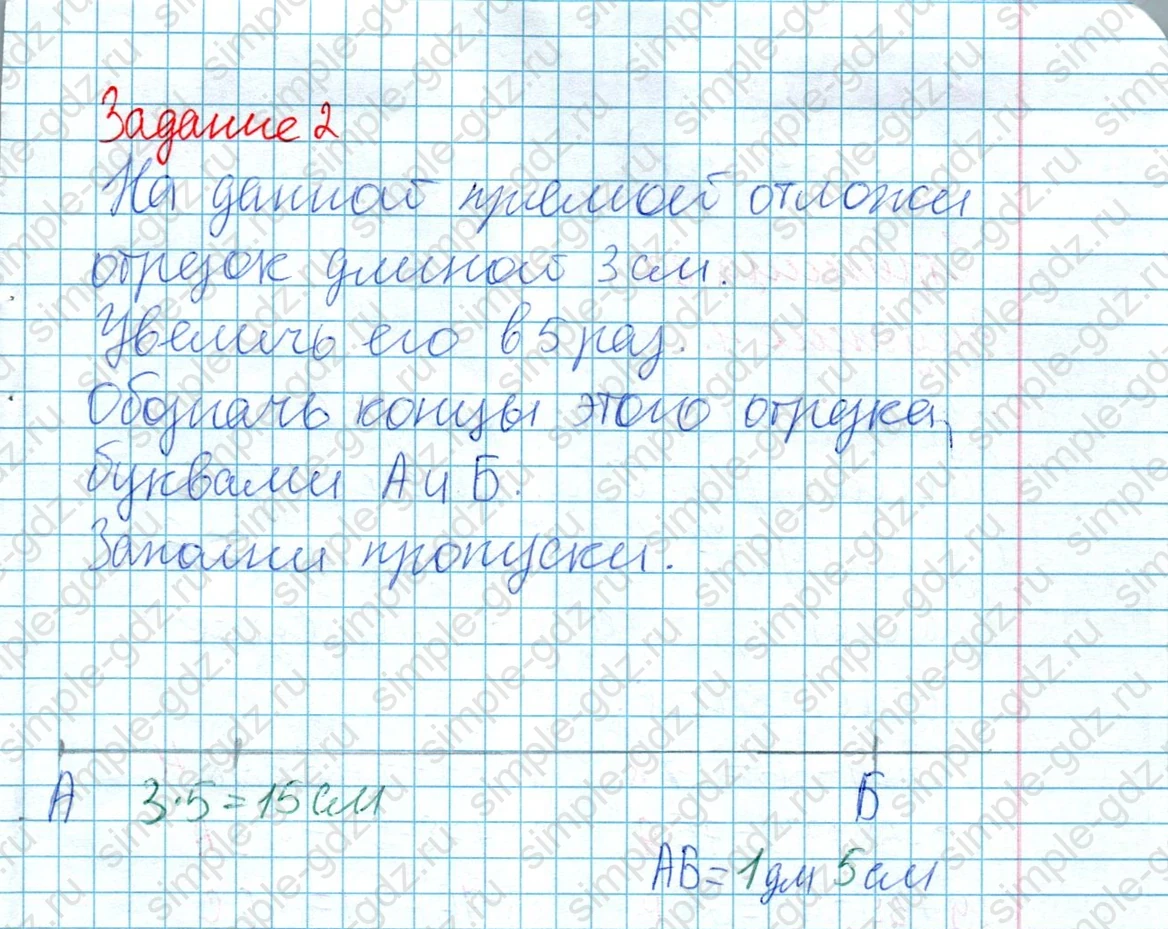 Задание 2
На данной прямой отложи
отрезок длиной 3 см.
Увеличь его в 5 раз.
Обозначь концы этого отрезка
буквами А и Б.
Заполни пропуски.
А 3·5=15 см Б
АБ=1 дм 5 см
simple-gdz.ru